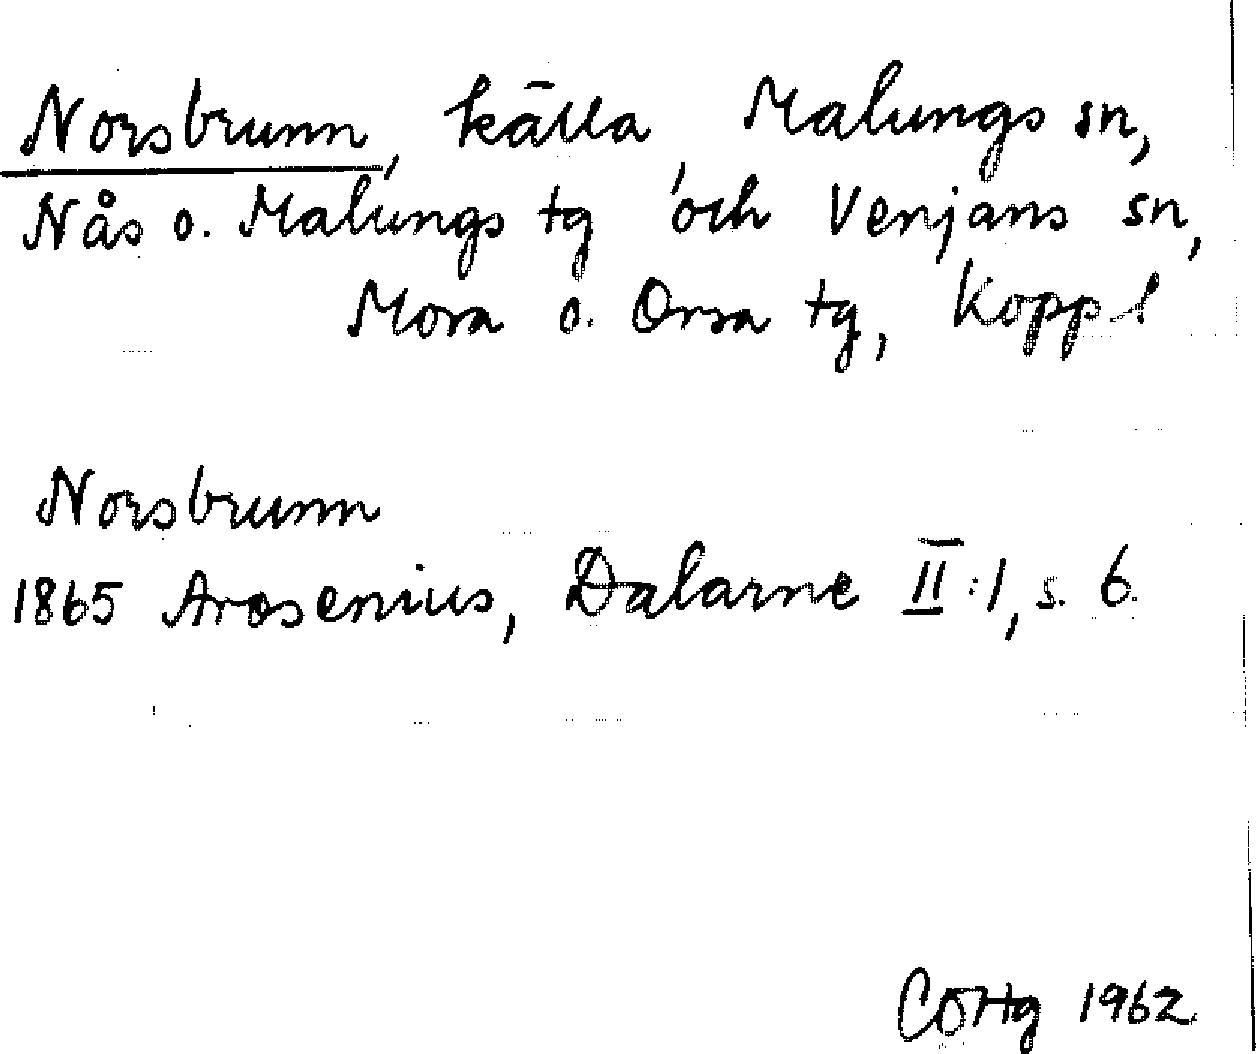 Norsbrunn, källa, Malungs sn,
Nås o. Malungs tg och Venjans sn,
Mora o. Orsa tg, Kopp l
Norsbrunn
1865 Arosenius, Dalarne II:1, s. 6.
1962